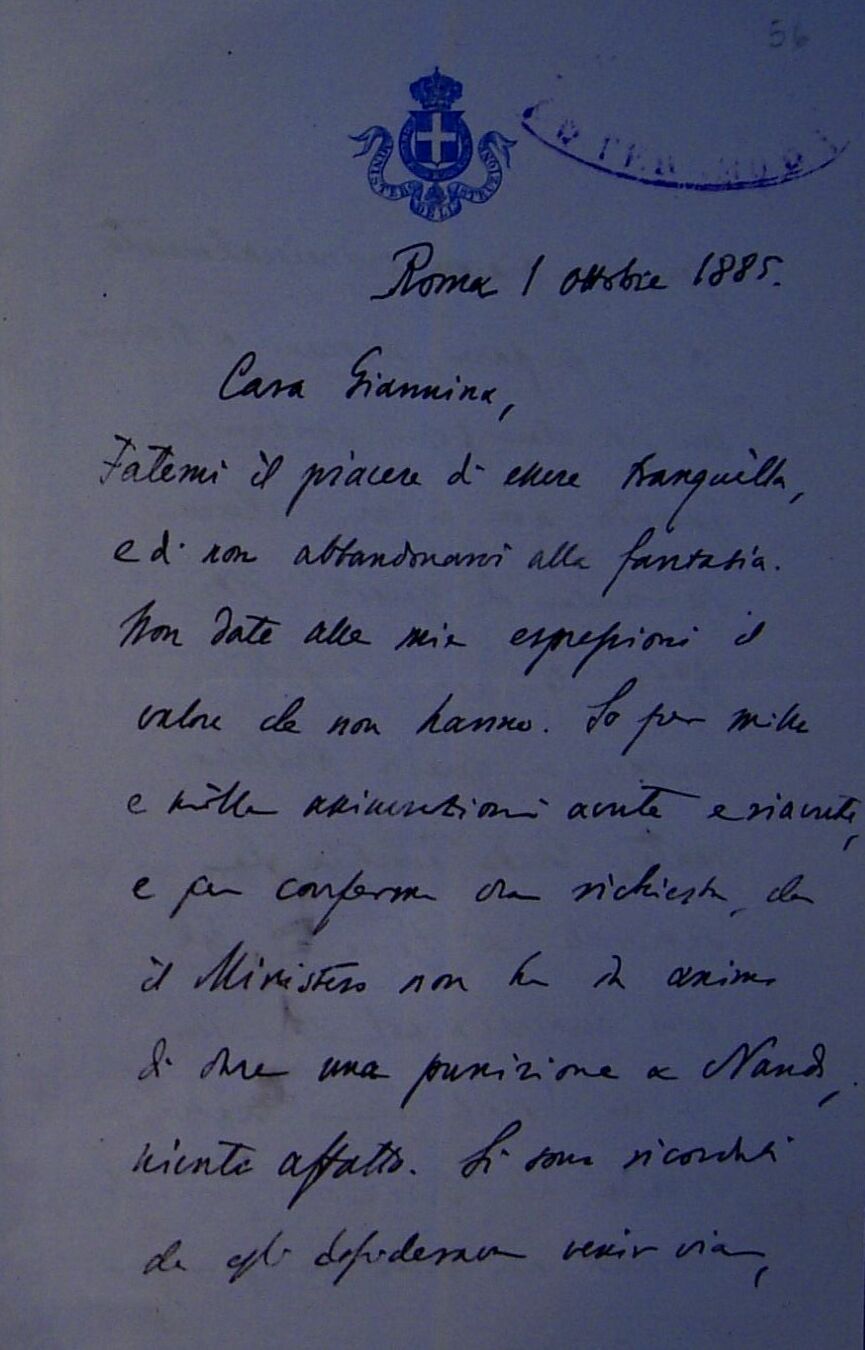 56
MINISTERO DELL' ISTRUZION
Roma 1 ottobre 1885.
Cara Giannina,
Fatemi il piacere di essere tranquilla,
e di non abbandonarvi alla fantasia.
Non date alle mie espressioni il
valore che non hanno. So per mille
e mille assicurazioni avute e riavute,
e per conferma ora richiesta, che
il Ministero non ha in animo
di dare una punizione a Nando,
niente affatto. Si sono ricordati
che egli desiderava venir via,